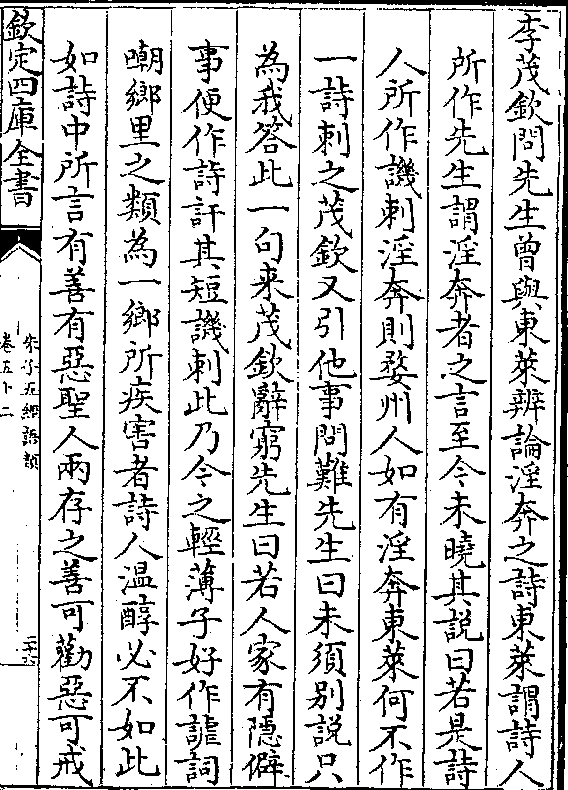 李茂欽問先生曾與東萊辨論淫奔之詩東萊謂詩人
所作先生謂淫奔者之言至今未曉其説曰若是詩
人所作譏刺淫奔則婺州人如有淫奔東萊何不作
一詩刺之茂欽又引他事問難先生曰未須別説只
為我答此一句来茂欽辭窮先生曰若人家有隠僻
事便作詩訐其短譏刺此乃今之輕薄子好作謔詞
嘲鄉里之類為一鄉所疾害者詩人温醇必不如此
如詩中所言有善有惡聖人兩存之善可勸惡可戒
欽定四庫全書
朱子五經語類
卷五十二